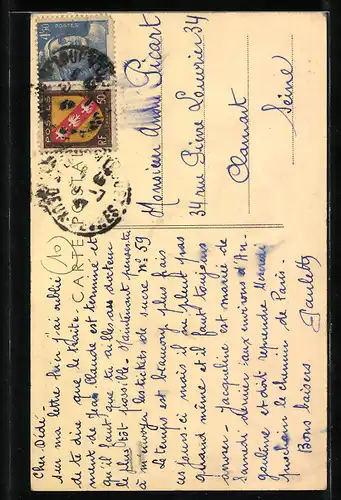 CARTE POSTALE
POSTES
4F50
POSTES
RF 50
Cher Dédé (10)
sur ma lettre hier j'ai oublié
de te dire que le traite-
ment de Jean Claude est terminé et
qu'il faut que tu ailles au docteur
le plus tôt possible. Maintenant pensez
à m'envoyer les tickets de sucre n° 59
Le temps est beaucoup plus frais
ces jours-ci mais il ne pleut pas
quand même et il faut toujours
arroser. Jacqueline est mariée de
Samedi dernier aux environs d'An-
goulême et doit reprendre
prochain le chemin de Paris.
Bons baisers
Paulette
Monsieur André Picart
34 rue Pierre Louvrier 34
Clamart
Seine